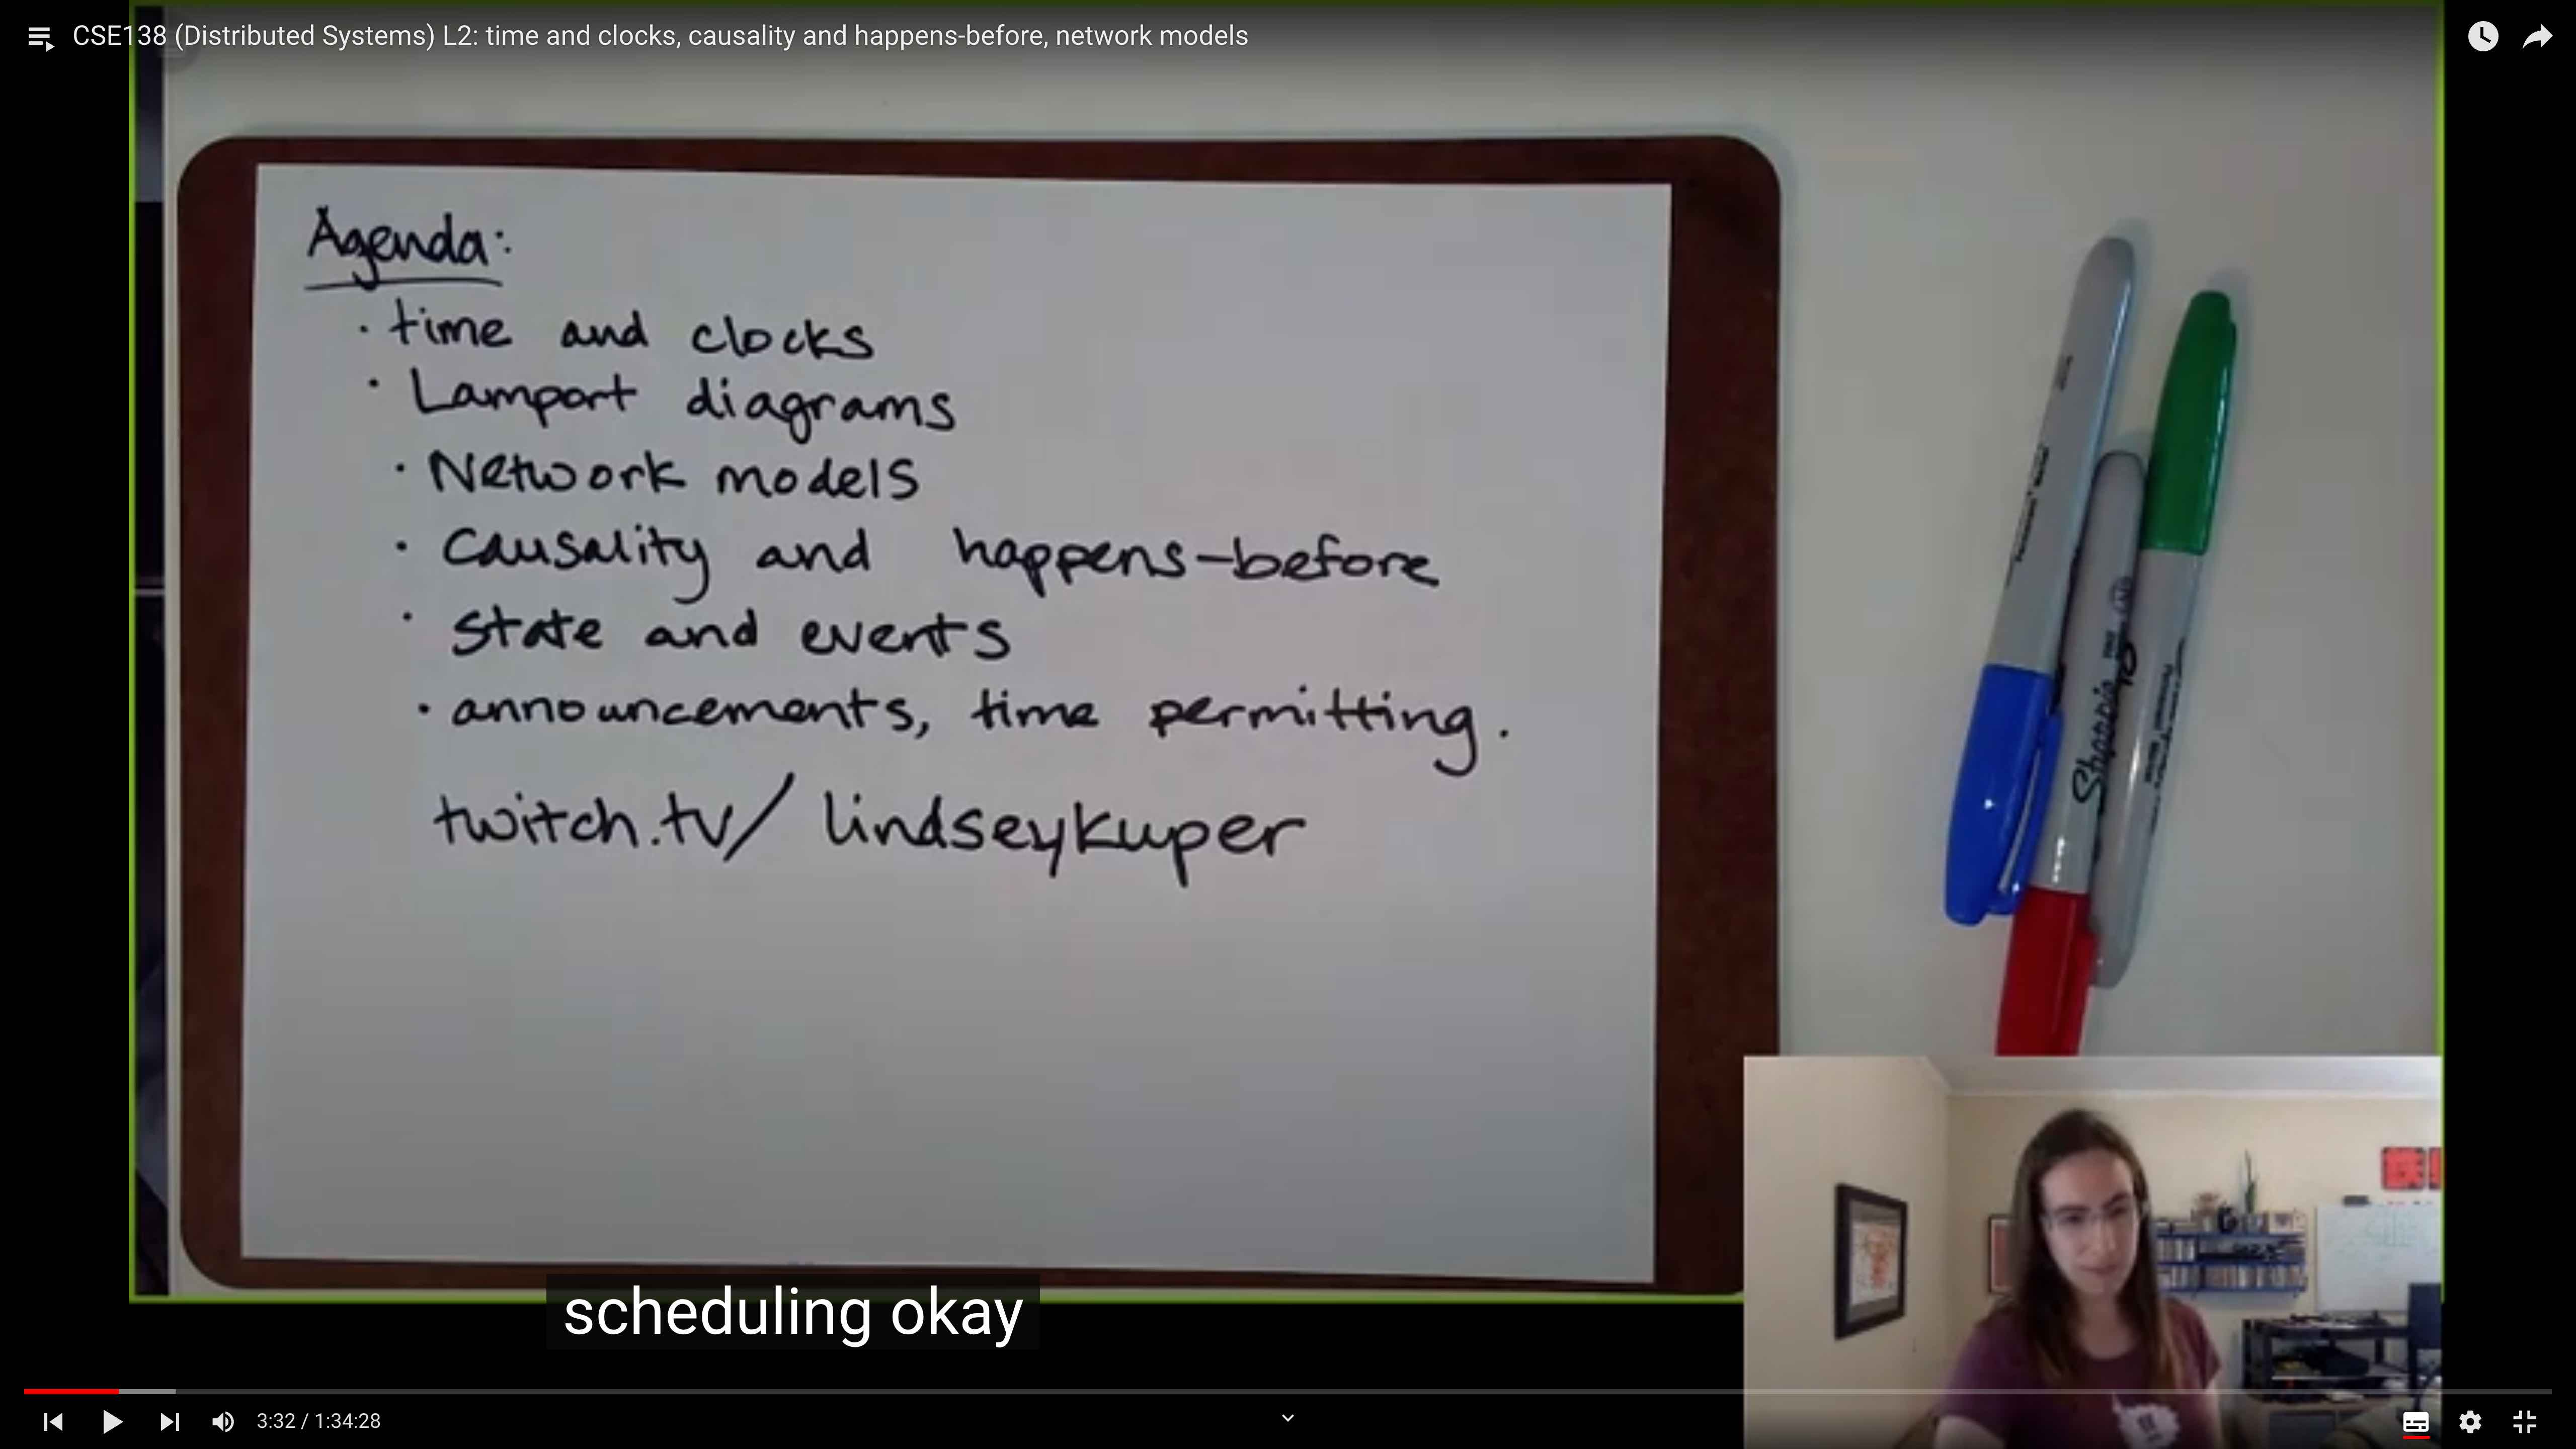 CSE138 (Distributed Systems) L2: time and clocks, causality and happens-before, network models
Agenda:
· time and clocks
· Lamport diagrams
· Network models
· Causality and happens-before
· State and events
· announcements, time permitting.
twitch.tv/ lindseykuper
Sharpie
scheduling okay
3:32 / 1:34:28